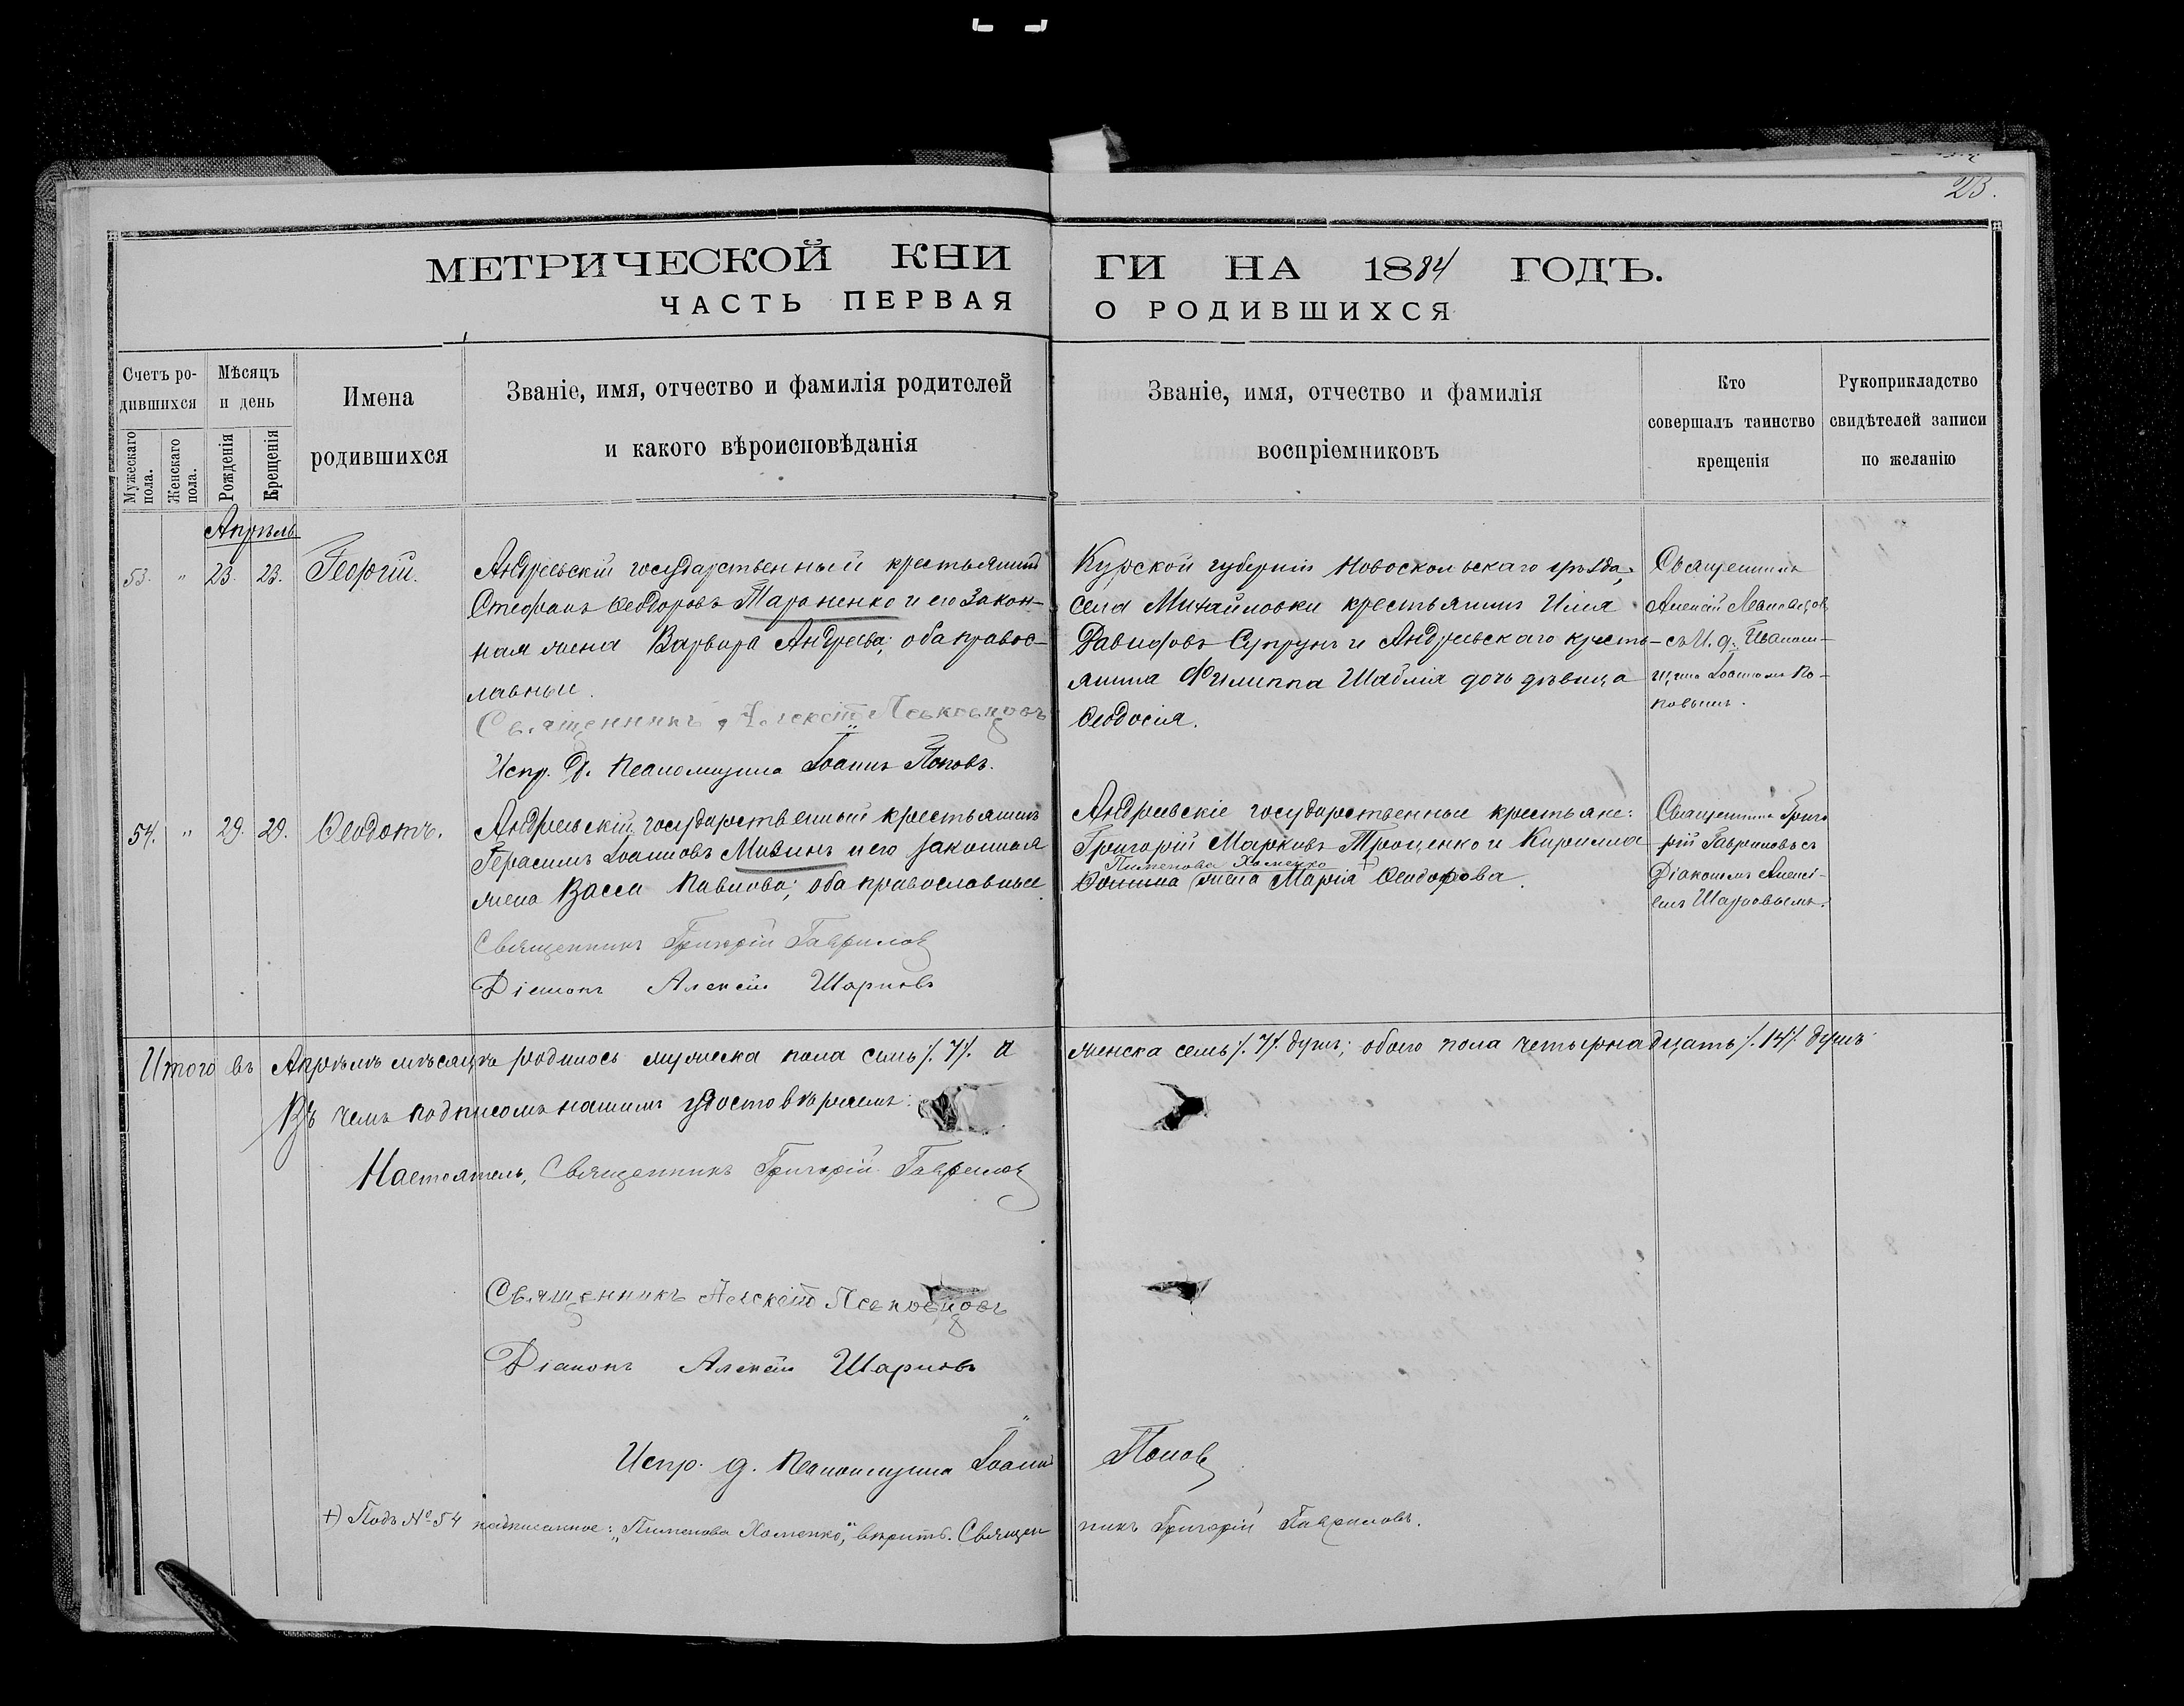 23.
МЕТРИЧЕСКОЙ КНИ ГИ НА 1884 ГОДЪ.
ЧАСТЬ ПЕРВАЯ О РОДИВШИХСЯ
Счетъ ро-
дившихся
Мужескаго пола.
Женскаго пола.
Мѣсяцъ
и день
Рожденія
Крещенія
Имена
родившихся
Званіе, имя, отчество и фамилія родителей
и какого вѣроисповѣданія
Званіе, имя, отчество и фамилія
воспріемниковъ
Кто
совершалъ таинство
крещенія
Рукоприкладство
свидѣтелей записи
по желанію
Апрѣль
53. " 23. 23. Георгій.
Андреевскій государственный крестьянинъ
Стефанъ Ѳеодоровъ Тараненко и его закон-
ная жена Варвара Андреева; оба правос-
лавные.
Священникъ Алексѣй
Испр. д. псаломщика Іоаннъ Поповъ.
Курской губерніи Новоскольскаго уѣзда,
села Михайловки крестьянинъ Илія
Давидовъ Супрунъ и Андреевскаго кресть-
янина Филиппа Шаблія дочь дѣвица
Ѳеодосія.
Священникъ
Алексій
съ И. д. Псалом-
щика Іоанномъ По-
повымъ.
54. " 29. 29. Ѳеодотъ.
Андреевскій государственный крестьянинъ
Герасимъ Іоанновъ Мивинъ и его законная
жена Васса Павлова; оба православные.
Священникъ Григорій Гаврилов
Діаконъ Алексѣй Шарповъ
Андреевскіе государственные крестьяне:
Григорій Марковъ Троценко и Кирилла
Пименова Хоменко +)
жена Марія Ѳеодорова.
Священникъ Григо-
рій Гавриловъ съ
Діакономъ Алексі-
емъ Шарповымъ.
Итого въ Апрѣлѣ мѣсяцѣ родилось мужеска пола семь /. 7/. а женска семь /. 7/. душъ; обоего пола четырнадцать /. 14/. душъ
Въ чемъ подписомъ нашимъ удостовѣряемъ:
Настоятель, Священникъ Григорій Гаврилов
Священникъ Алексѣй
Діаконъ Алексѣй Шарповъ
Испр. д. псаломщика Іоаннъ Попов
+) Подъ № 54 надписанное: „Пименова Хоменко", вѣрить. Священникъ Григорій Гавриловъ.